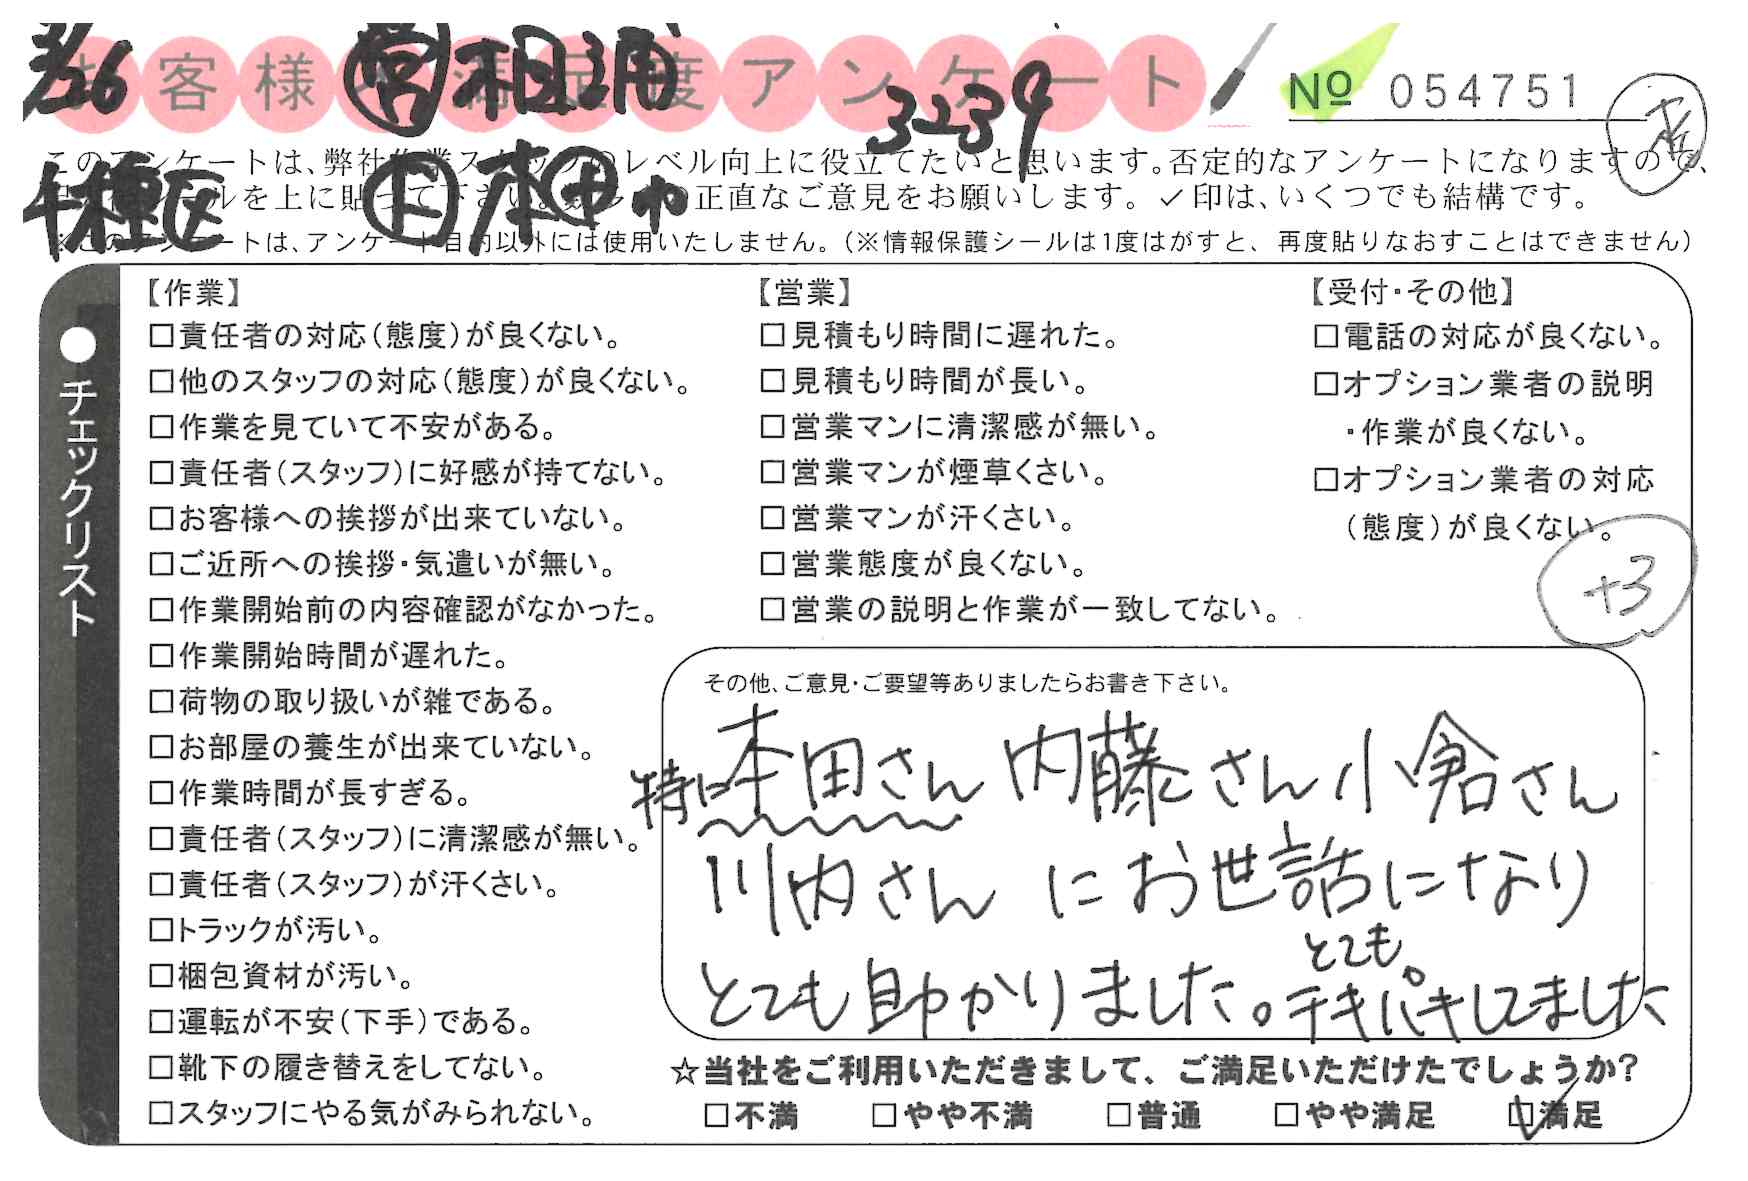 3/26 営 相澤 3239
お客様の満足度アンケート
No 054751
千種区 下 本田
このアンケートは、弊社作業スタッフのレベル向上に役立てたいと思います。否定的なアンケートになりますので、
シールを上に貼って下さい。正直なご意見をお願いします。✓印は、いくつでも結構です。
※このアンケートは、アンケート目的以外には使用いたしません。（※情報保護シールは1度はがすと、再度貼りなおすことはできません）
●チェックリスト
【作業】
□責任者の対応（態度）が良くない。
□他のスタッフの対応（態度）が良くない。
□作業を見ていて不安がある。
□責任者（スタッフ）に好感が持てない。
□お客様への挨拶が出来ていない。
□ご近所への挨拶・気遣いが無い。
□作業開始前の内容確認がなかった。
□作業開始時間が遅れた。
□荷物の取り扱いが雑である。
□お部屋の養生が出来ていない。
□作業時間が長すぎる。
□責任者（スタッフ）に清潔感が無い。
□責任者（スタッフ）が汗くさい。
□トラックが汚い。
□梱包資材が汚い。
□運転が不安（下手）である。
□靴下の履き替えをしてない。
□スタッフにやる気がみられない。
【営業】
□見積もり時間に遅れた。
□見積もり時間が長い。
□営業マンに清潔感が無い。
□営業マンが煙草くさい。
□営業マンが汗くさい。
□営業態度が良くない。
□営業の説明と作業が一致してない。
【受付・その他】
□電話の対応が良くない。
□オプション業者の説明
・作業が良くない。
□オプション業者の対応
（態度）が良くない。
+3
その他、ご意見・ご要望等ありましたらお書き下さい。
特に本田さん 内藤さん 小倉さん
川内さん にお世話になり
とても助かりました。とてもテキパキしてました。
☆当社をご利用いただきまして、ご満足いただけたでしょうか？
□不満 □やや不満 □普通 □やや満足 ☑満足